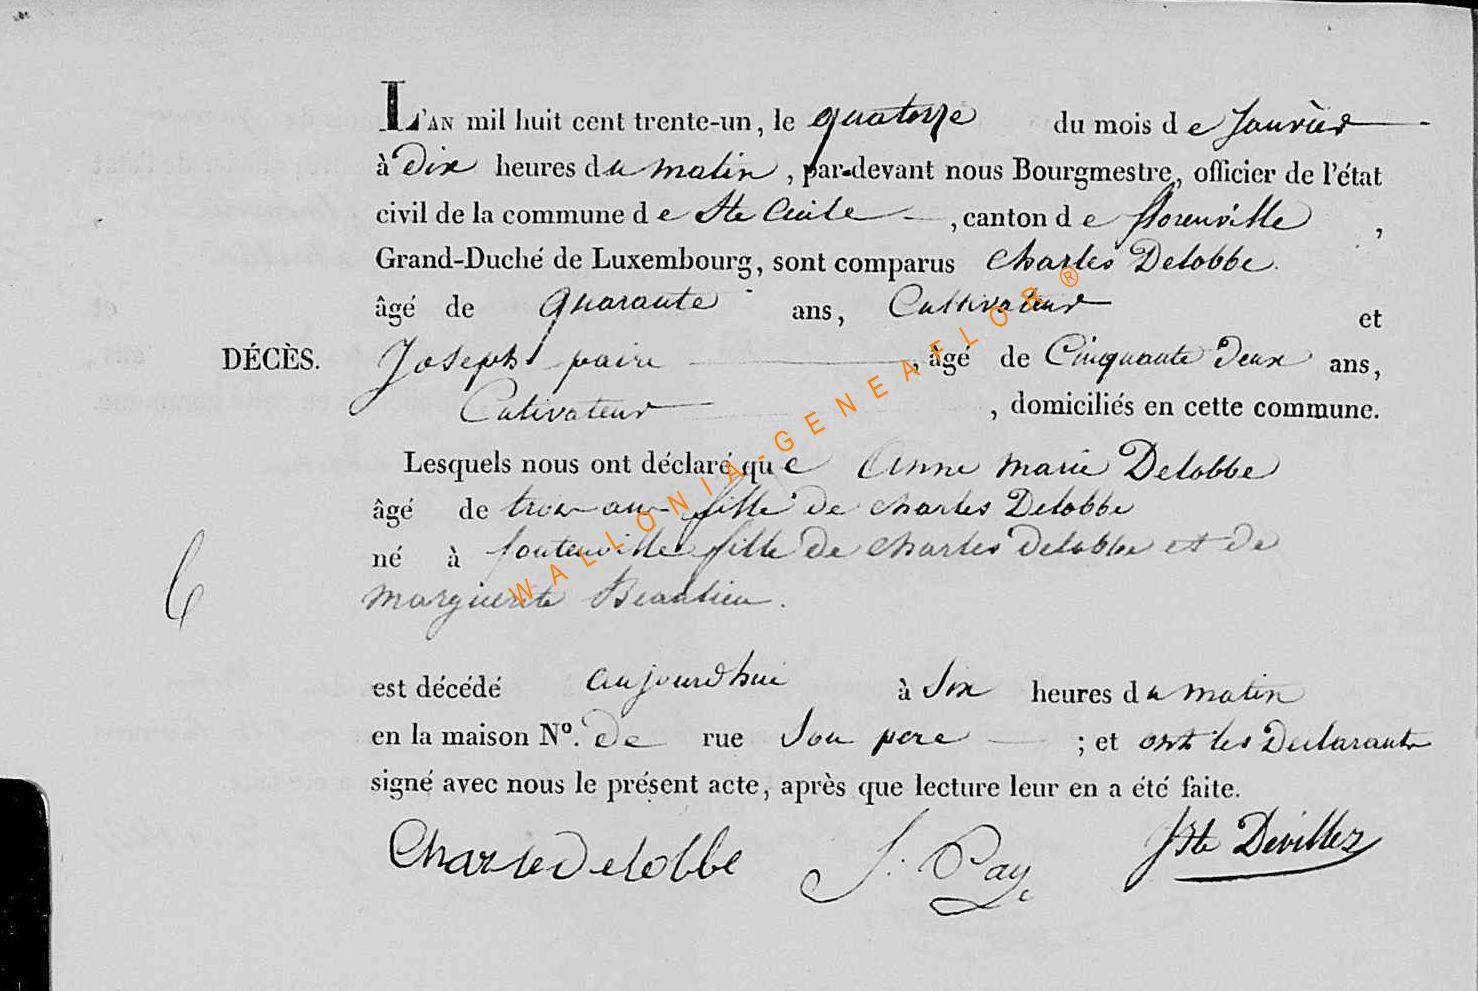 L'AN mil huit cent trente-un, le quatorze du mois de Janvier
à Dix heures du matin, par-devant nous Bourgmestre, officier de l'état
civil de la commune de Ste Cecile, canton de florenville,
Grand-Duché de Luxembourg, sont comparus Charles Delobbe
âgé de quarante ans, Cultivateur et
DÉCÈS.
Joseph, âgé de Cinquante Deux ans,
Cutivateur, domiciliés en cette commune.
Lesquels nous ont déclaré que Anne marie Delobbe
âgé de trois ans fille de charles Delobbe
né à fontenville fille de charles Delobbe et de
6
marguerite Beaulieu.
est décédé aujourdhui à Six heures du matin
en la maison Nº. de rue Son pere; et ont les Declarants
signé avec nous le présent acte, après que lecture leur en a été faite.
Charles Delobbe J. Pay Jh Devillez
WALLONIA-GENEAFLOR®